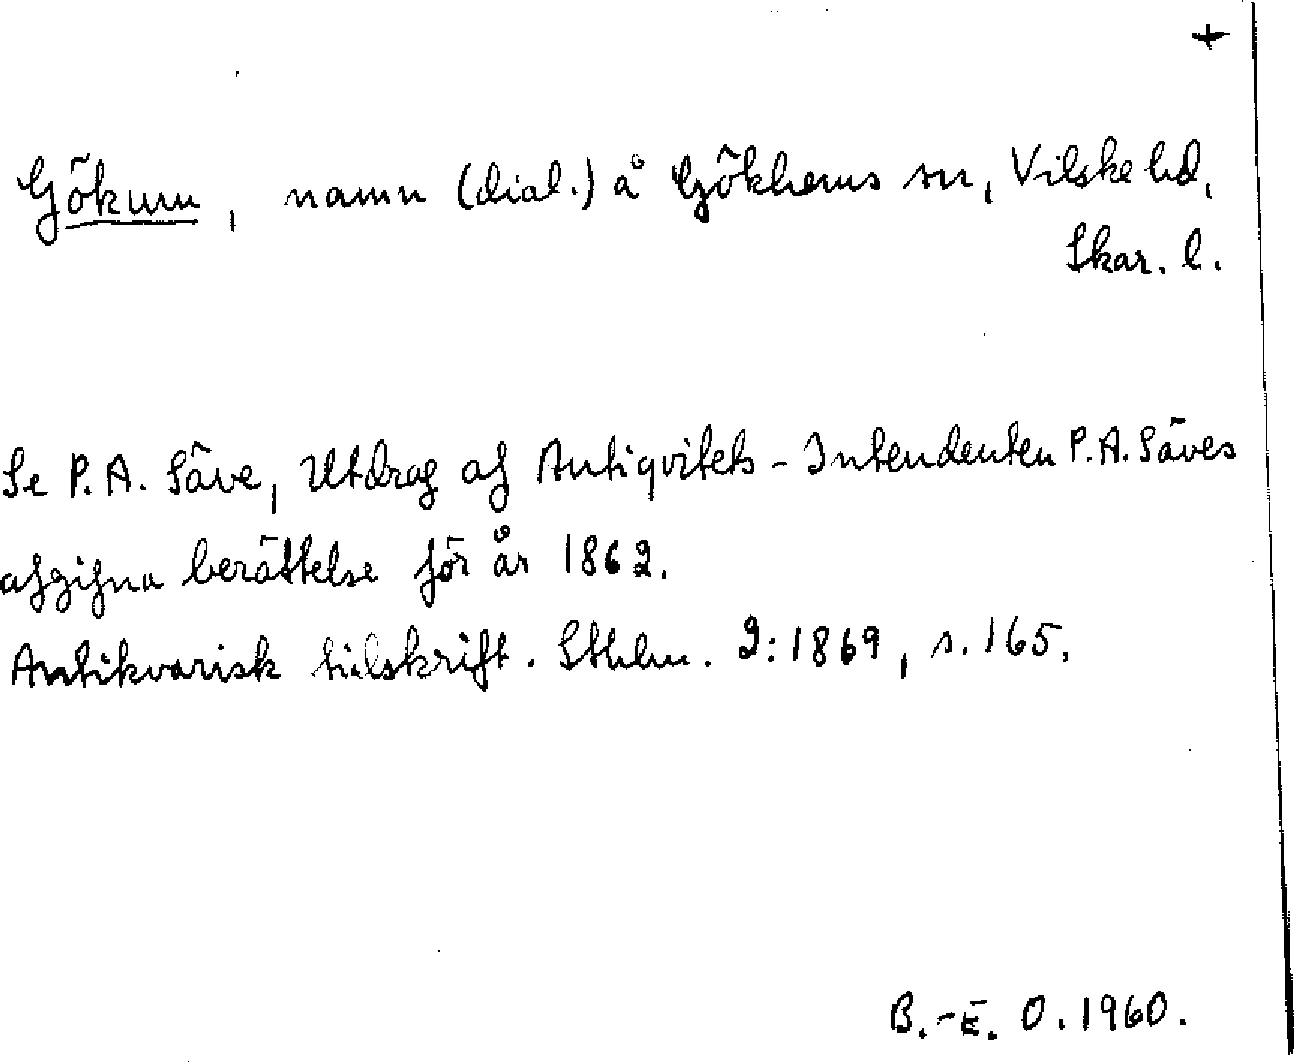 +
Gökum, namn (dial.) å Gökhems sn, Vilske hd,
Skar. l.
Se P. A. Säve, Utdrag af Antiqvitets-Intendenten P. A. Säves
afgifna berättelse för år 1862.
Antikvarisk tidskrift. Sthlm. 2:1869, s. 165.
B.-E. O. 1960.